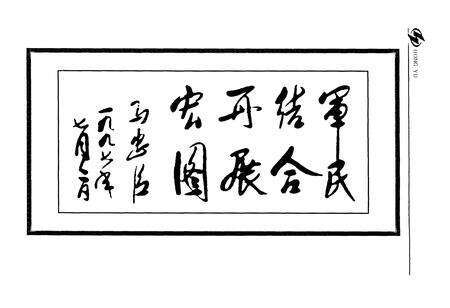 軍民
结合
再展
宏图
马忠臣
一九九七年
七月
HONG YU